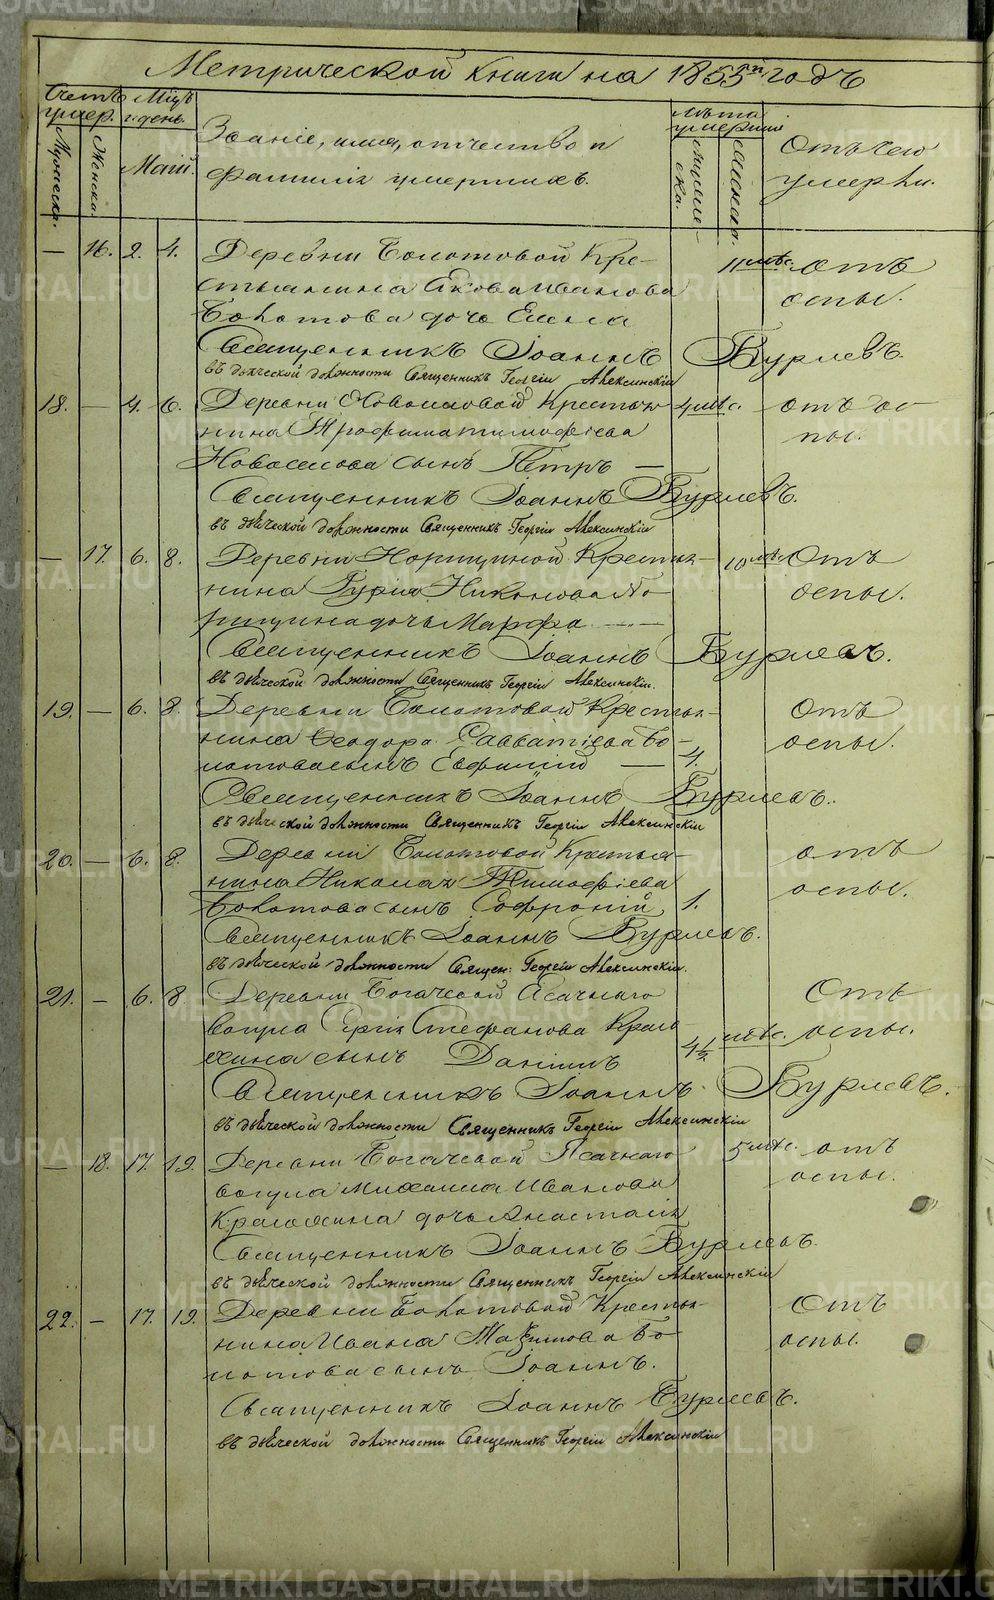 Метрической книги на 1855й годъ
Счетъ умер.
Мужеска.
Женска.
Мѣцъ и день.
Май.
Званіе, имя, отчество и
фамилія умершихъ.
Лѣта умершихъ
Мужеска.
Женска.
Отъ чего
умерли.
— 16. 2. 4. Деревни Болотовой Кре- 11 мѣс. отъ
стьянина Якова Иванова оспы.
Болотова дочь Елена
Священникъ Іоаннъ Бурлевъ.
въ дьяческой должности Священникъ Георгій Алексинскій
18. — 4. 6. Деревни Новоселовой Крестья 4 мѣс. отъ ос
нина Трофима Тимофѣева пы.
Новоселова сынъ Петръ —
Священникъ Іоаннъ Бурлевъ.
въ дьяческой должности Священникъ Георгій Алексинскій
— 17. 6. 8. Деревни Норициной Крестья- 10 мѣс. Отъ
нина Гурія Никонова Но оспы.
рицина дочь Марфа —
Священникъ Іоаннъ Бурлевъ.
въ дьяческой должности Священникъ Георгій Алексинскій.
19. — 6. 8. Деревни Болотовой Крестья- Отъ
нина Ѳеодора Савватіева Бо- 4. оспы.
лотова сынъ Евфимій —
Священникъ Іоаннъ Бурлевъ.
въ дьяческой должности Священникъ Георгій Алексинскій
20. — 6. 8. Деревни Болотовой Крестья- отъ
нина Николая Тимофѣева оспы.
Болотова сынъ Софроній, 1.
Священникъ Іоаннъ Бурлевъ.
въ дьяческой должности Священ: Георгій Алексинскій.
21. — 6. 8 Деревни Богачевой Ясачнаго Отъ
вогула Сергія Стефанова 4½ мѣс. оспы.
сынъ Даніилъ
Священникъ Іоаннъ Бурлевъ.
въ дьяческой должности Священникъ Георгій Алексинскій
— 18. 17. 19. Деревни Богачевой Ясачнаго 5 мѣс. отъ
вогула Михаила Иванова оспы.
дочь Анастасія
Священникъ Іоаннъ Бурлевъ.
въ дьяческой должности Священникъ Георгій Алексинскій
22. — 17. 19. Деревни Болотовой Крестья- Отъ
нина Ивана Мазимова Бо- оспы.
лотова сынъ Іоаннъ.
Священникъ Іоаннъ Бурлевъ.
въ дьяческой должности Священникъ Георгій Алексинскій
METRIKI.GASO-URAL.RU